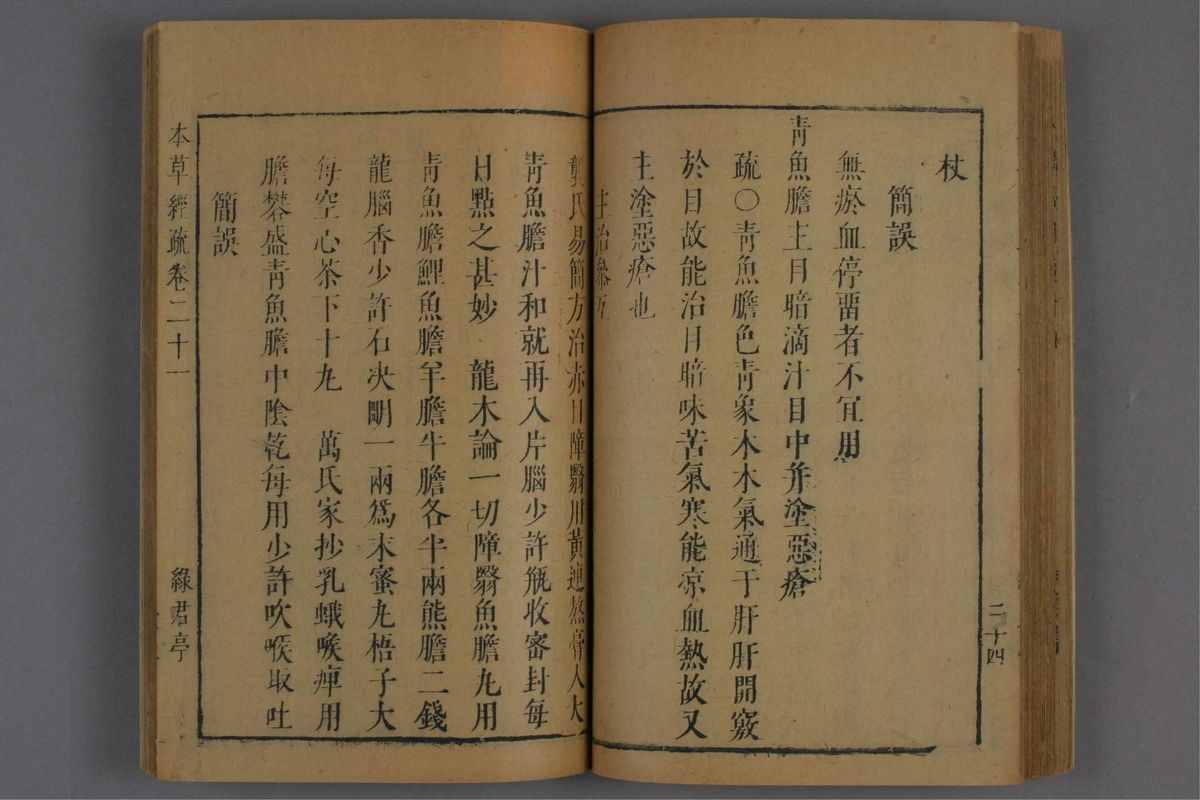 杖
簡誤
無瘀血停畱者不宜用
青魚膽主目暗滴汁目中并塗惡瘡
疏○青魚膽色青象木木氣通于肝肝開竅
於目故能治目暗味苦氣寒能凉血熱故又
主塗惡瘡也
二十四
主治參互
龔氏易簡方治赤目障翳用黃連熬膏入大
青魚膽汁和就再入片腦少許瓶收密封每
日點之甚妙 龍木論一切障翳魚膽丸用
青魚膽鯉魚膽羊膽牛膽各半兩熊膽二錢
龍腦香少許石决明一兩爲末蜜丸梧子大
每空心茶下十丸 萬氏家抄乳蛾喉痺用
膽礬盛青魚膽中陰乾每用少許吹喉取吐
簡誤
本草經疏卷二十一 綠君亭